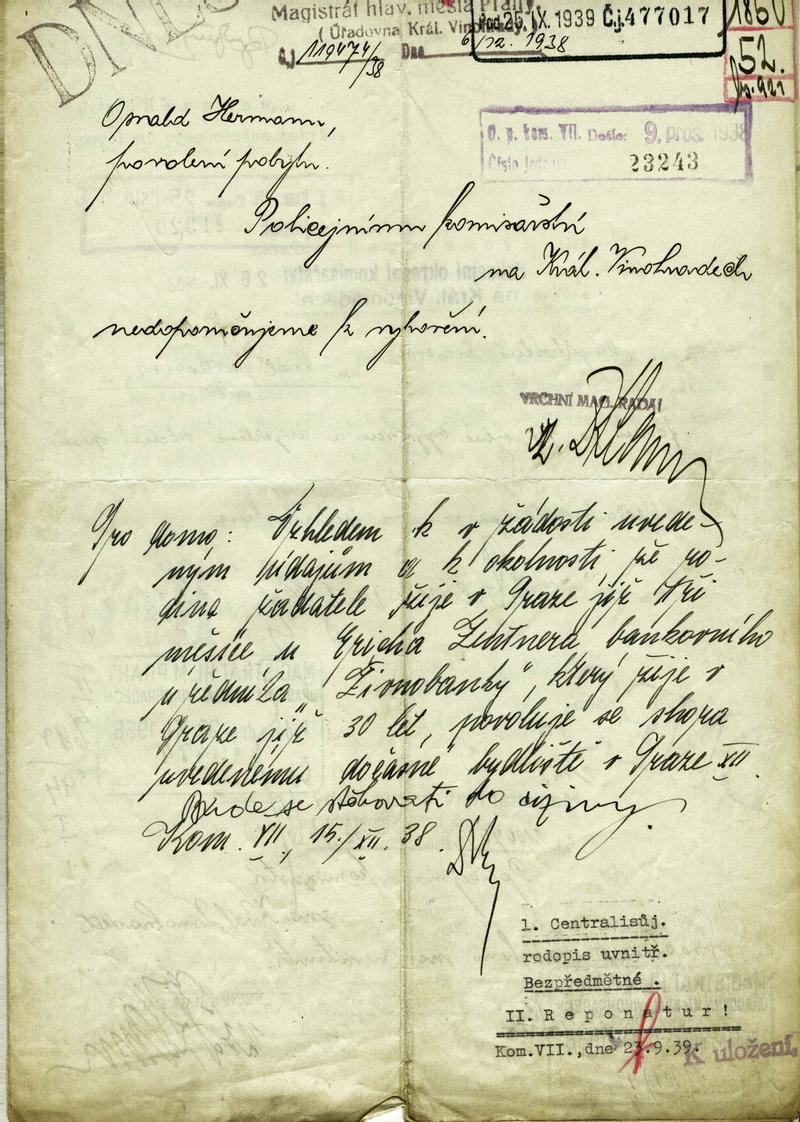 DNES
Magistrát hlav. města Prahy.
(Úřadovna Král. Vinohrady.)
Čj. 119474/38 Dne 6/12. 1938
Pod 26. IX. 1939 Čj. 477017
1860
52.
Oswald Hermann,
povolení pobytu.
O. p. kom. VII. Došlo: 9. pros. 1938
Číslo jednací 23243
Policejnímu komisařství
na Král. Vinohradech
nedoporučujeme k vyhovění.
VRCHNÍ MAG. RADA:
Pro domo: Vzhledem k v žádosti uvede-
ným údajům a k okolnosti, že ro-
dina žadatele žije v Praze již tři
měsíce u Ericha Zentnera bankovního
úředníka „Živnobanky", který žije v
Praze již 30 let, povoluje se shora
uvedenému dočasné bydliště v Praze XII.
Bude se stěhovati do ciziny.
Kom. VII, 15./XII. 38.
1. Centralisůj.
rodopis uvnitř.
Bezpředmětné.
II. Reponatur!
Kom.VII.,dne 23.9.39.
K uložení.